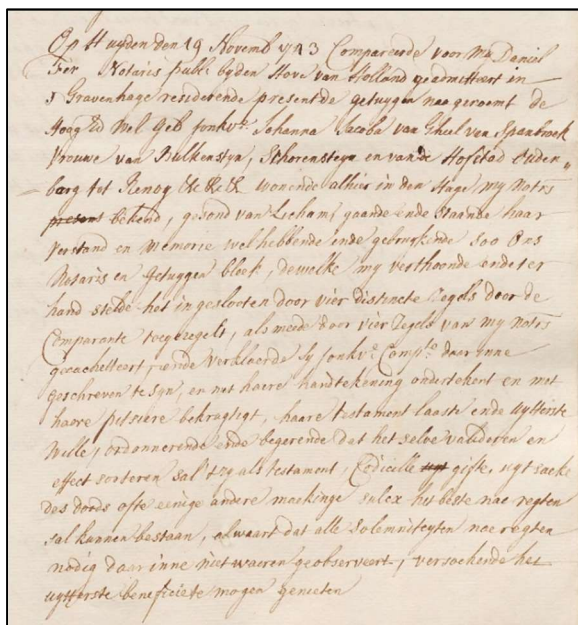 Op Huyden den 19 Novemb 1743 Compareerde voor My Daniel
Fer Notaris publ: byden Hove van Holland geadmitteert in
s Gravenhage residerende present de getuygen nae genoemt de
Hoog Ed Wel Geb Jonkvr. Johanna Jacoba van Gheel van Spanbroek
Vrouwe van Bulkensteyn, Schorensteyn en van de Hofstad Ouden„
barg tot Renoy &c &c &c wonende alhier in den Hage, my Notrs
present bekend, gesond van Licham, gaande ende staande haar
verstand en Memorie wel hebbende ende gebruykende soo Ons
Notaris en getuygen bleek, dewelke my verthoonde ende ter
hand stelde het in geslooten door vier distincte Zegels door de
Comparante toegezegelt, als mede door vier Zegels van my Notrs
gecachetteert, ende verklaerde sy Jonkvr. Compte. daer inne
geschreven te syn, en met haere handtekening ondertekent en met
haere petsiere bekragtigt, haare testament laaste ende uytterste
Wille, ordonnerende ende begerende dat het selve valideren en
effect sorteren sal tzy als testament, Codicille gifte, uyt saeke
des doods ofte eenige andere maekinge sulcx het beste nae regten
sal kunnen bestaan, alwaart dat alle solemniteyten nae regten
nodig daar inne niet waeren geobserveert, versoekende het
uytterste beneficie te mogen genieten